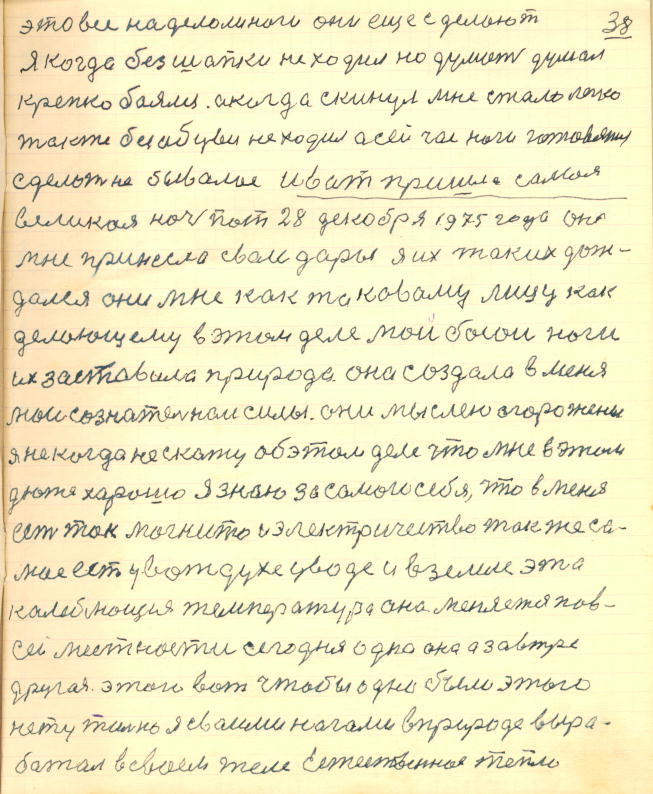 38
это все наделом ноги они еще сделают
я когда без шапки не ходил но думат думал
крепко баялся. а когда скинул мне стало легко
также без обуви не ходил а сейчас ноги готовятся
сделат не бывалое И вот пришла самая
великая ноч под 28 декобря 1975 года она
мне принесла сваи дары я их таких дож-
дался они мне как таковаму лицу как
делающему в этом деле мои босои ноги
их заставила природа. она создала в меня
мои сознателнаи силы. они мыслею огорожены
я некогда не скажу об этом деле что мне в этом
дюже харошо Я знаю за самого себя, что в меня
ест ток могнито и электричество также са-
мое ест у воздухе у воде и в земле эта
калеблющия температура она меняется пов-
сей местности сегодня одна она а завтре
другая. этого вот чтобы одно было этого
нету толко я сваими ногами в природе выра-
батал в своем теле Естественное тепло